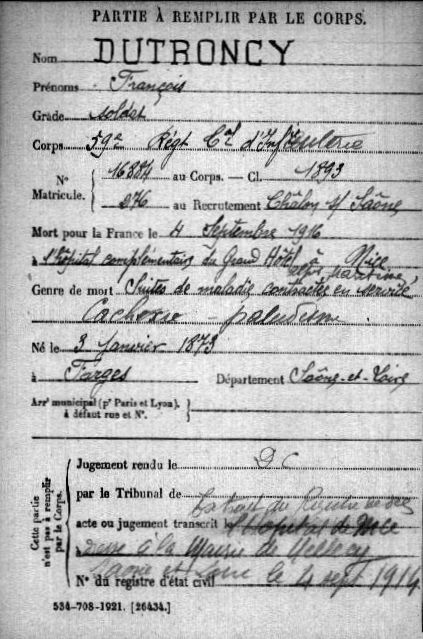 PARTIE À REMPLIR PAR LE CORPS.
Nom DUTRONCY
Prénoms François
Grade soldat
Corps 59e Régt Cal d'Infanterie
No 16884 au Corps. — Cl. 1893
Matricule. 276 au Recrutement Châlon s/ Saône
Mort pour la France le 4 Septembre 1916
à l'hôpital complémentaire du Grand Hôtel à Nice
alpes maritime
Genre de mort Suites de maladie contractée en service
Cachexie - paludisme
Né le 3 Janvier 1873
à Farges Département Saône-et-Loire
Arrt municipal (pr Paris et Lyon), à défaut rue et No.
Cette partie n'est pas à remplir par le Corps.
Jugement rendu le DC
par le Tribunal de du Registre
acte ou jugement transcrit le Hôpital de Nice
à la Mairie de
Saone et Loire le 4 sept 1914
No du registre d'état civil
534-708-1921. [26434.]